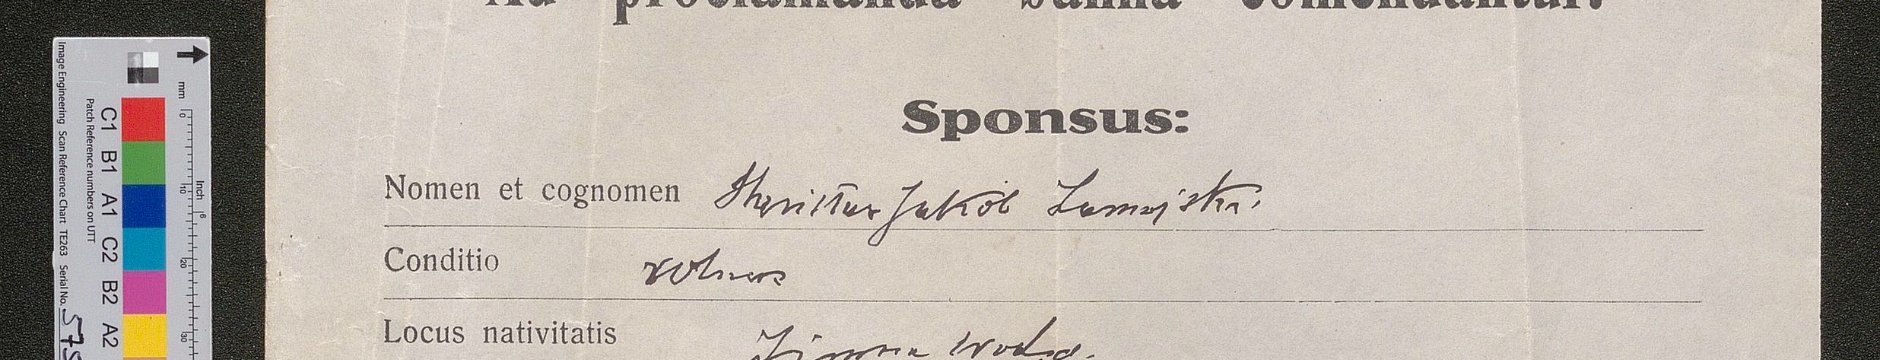 Ad proclamanda banna comendantur:
Sponsus:
Nomen et cognomen Jakób
Conditio rolnik
Locus nativitatis Zimna Woda.
Image Engineering Scan Reference Chart TE263 Serial No. 579
Patch Reference numbers on UTT
C1 B1 A1 C2 B2 A2
mm
0 10 20 30
Inch